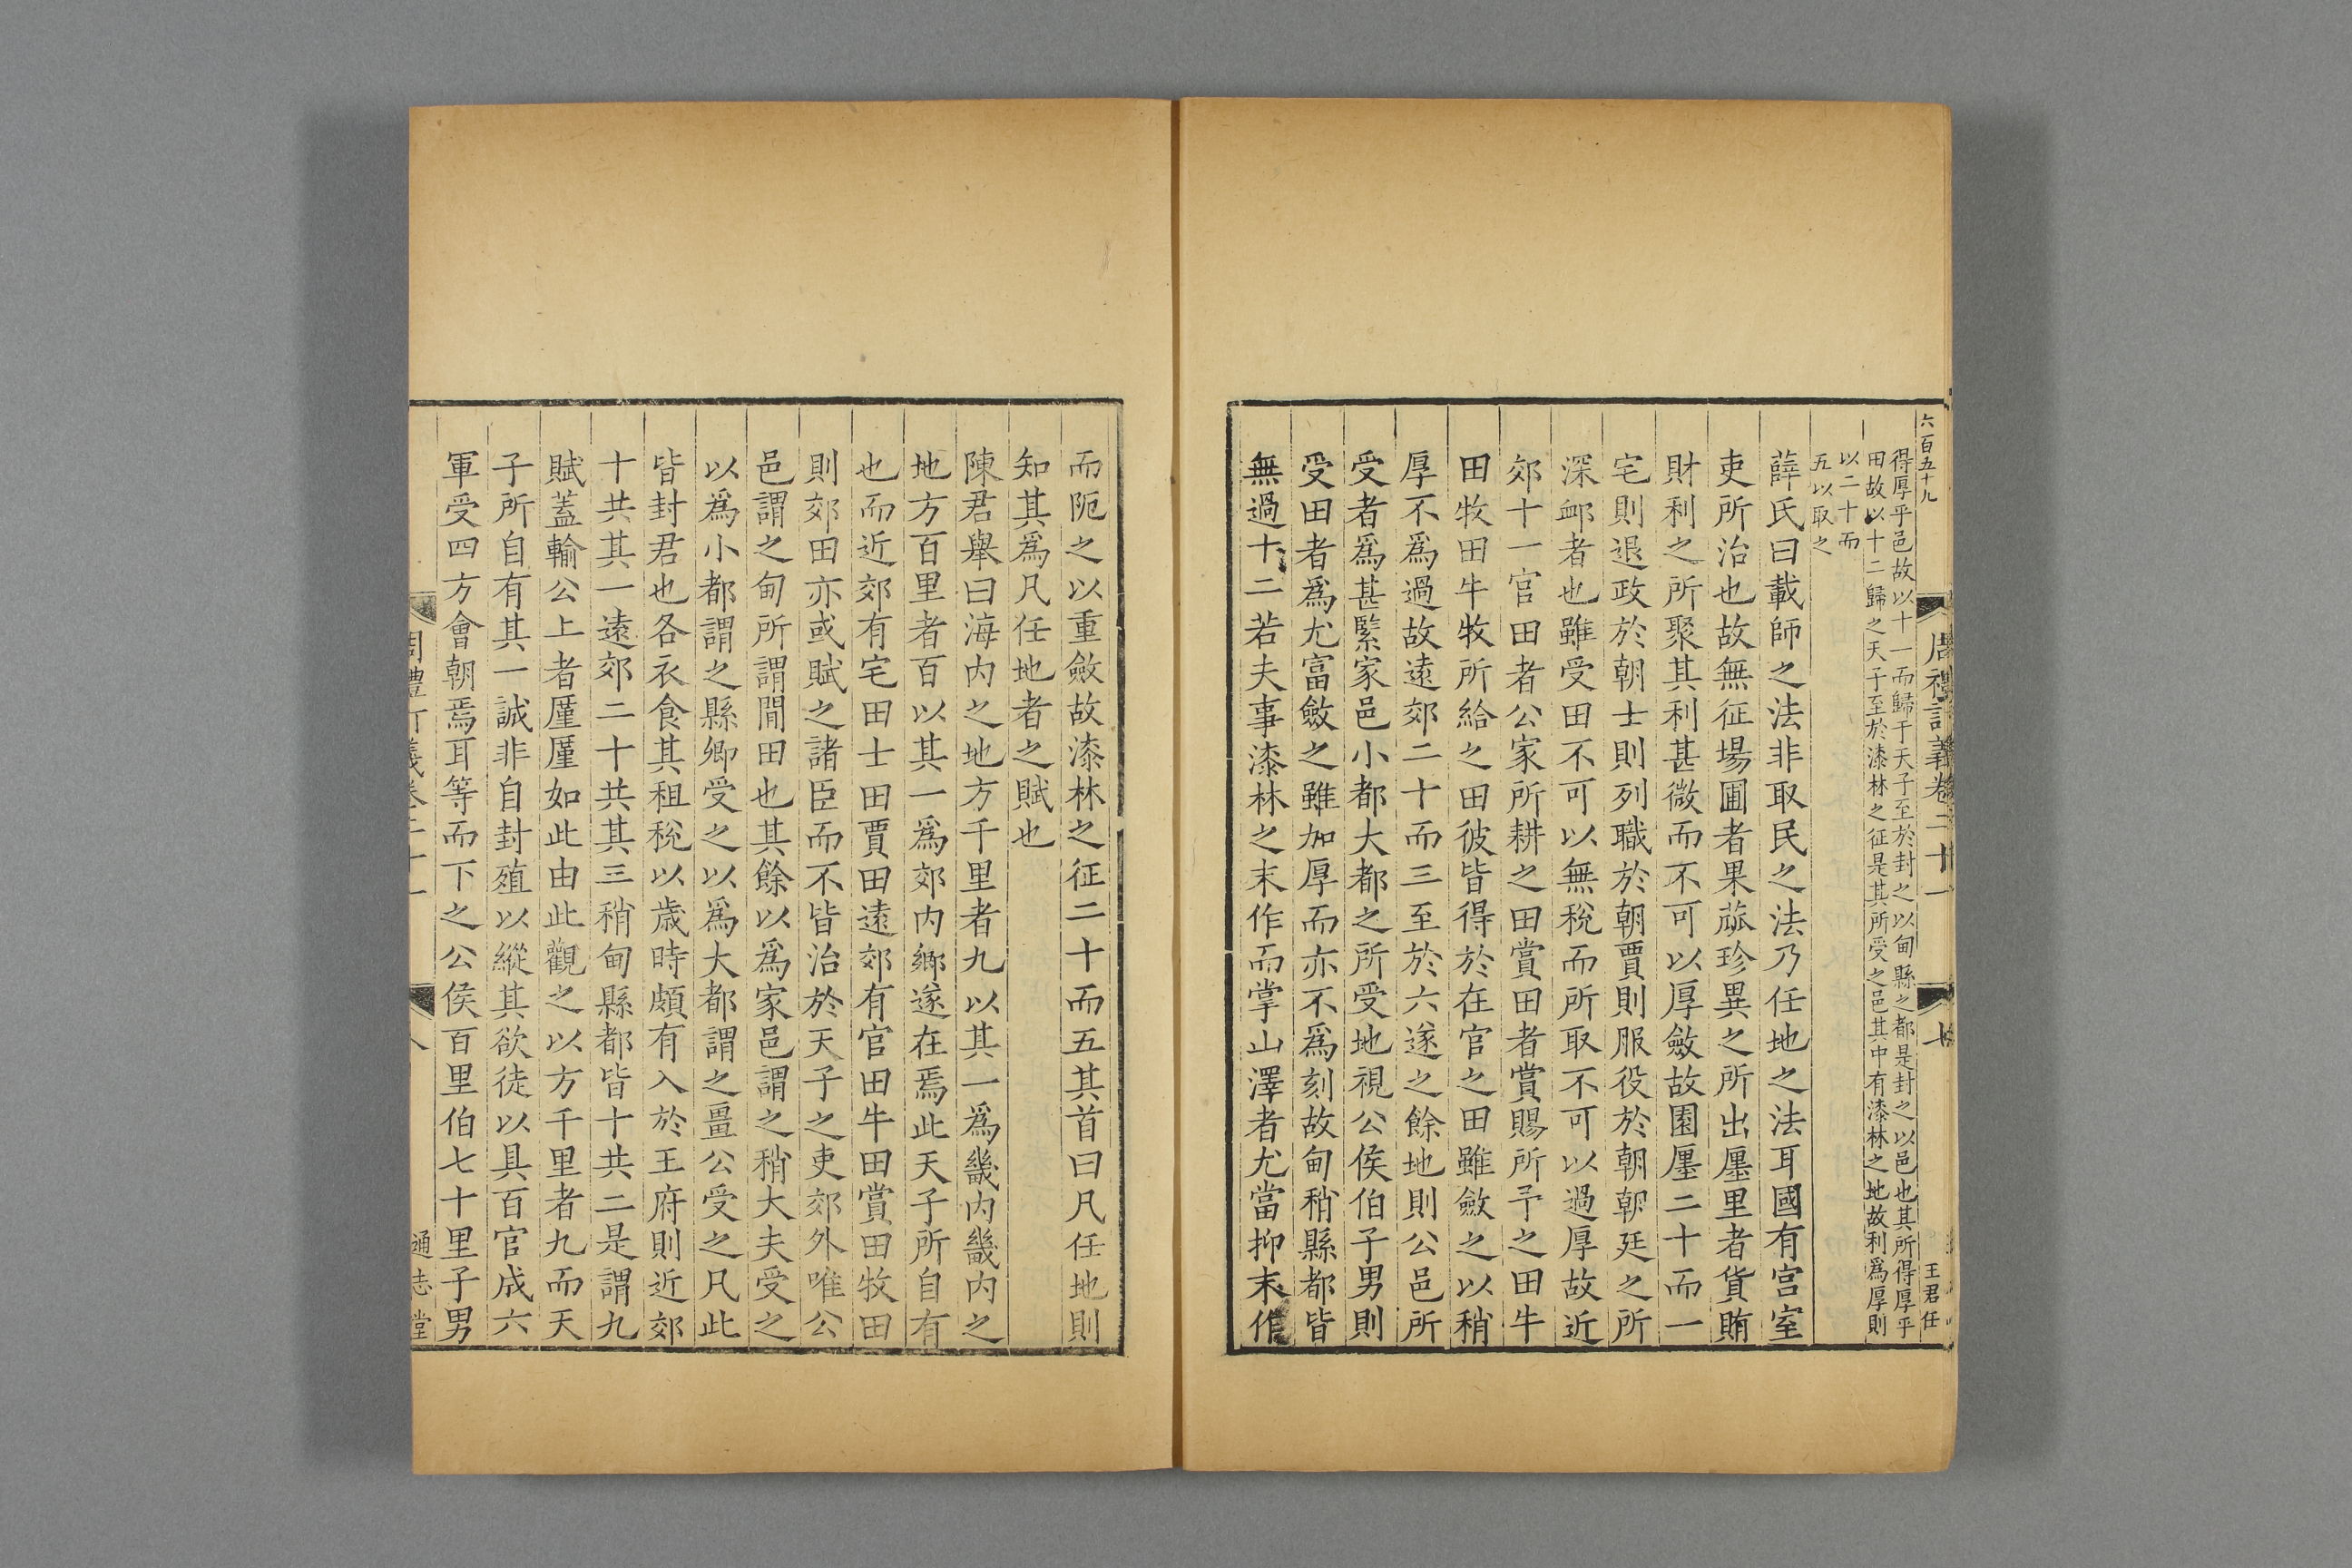 六百五十九
周禮訂義卷二十一
七
王君任
得厚乎邑故以十一而歸于天子至於封之以甸縣之都是封之以邑也其所得厚乎
田故以十二歸之天子至於漆林之征是其所受之邑其中有漆林之地故利爲厚則
以二十而
五以取之
薛氏曰載師之法非取民之法乃任地之法耳國有宫室
吏所治也故無征場圃者果蓏珍異之所出廛里者貨賄
財利之所聚其利甚微而不可以厚斂故園廛二十而一
宅則退政於朝士則列職於朝賈則服役於朝朝廷之所
深卹者也雖受田不可以無稅而所取不可以過厚故近
郊十一官田者公家所耕之田賞田者賞賜所予之田牛
田牧田牛牧所給之田彼皆得於在官之田雖斂之以稍
厚不爲過故遠郊二十而三至於六遂之餘地則公邑所
受者爲甚緊家邑小都大都之所受地視公侯伯子男則
受田者爲尤富斂之雖加厚而亦不爲刻故甸稍縣都皆
無過十二若夫事漆林之末作而掌山澤者尤當抑末作
而阨之以重斂故漆林之征二十而五其首曰凡任地則
知其爲凡任地者之賦也
陳君舉曰海内之地方千里者九以其一爲畿内畿内之
地方百里者百以其一爲郊内鄉遂在焉此天子所自有
也而近郊有宅田士田賈田遠郊有官田牛田賞田牧田
則郊田亦或賦之諸臣而不皆治於天子之吏郊外唯公
邑謂之甸所謂閒田也其餘以爲家邑謂之稍大夫受之
以爲小都謂之縣卿受之以爲大都謂之畺公受之凡此
皆封君也各衣食其租稅以歲時頗有入於王府則近郊
十共其一遠郊二十共其三稍甸縣都皆十共二是謂九
賦蓋輸公上者厪厪如此由此觀之以方千里者九而天
子所自有其一誠非自封殖以縱其欲徒以具百官成六
軍受四方會朝焉耳等而下之公侯百里伯七十里子男
周禮訂義卷二十一
八
通志堂